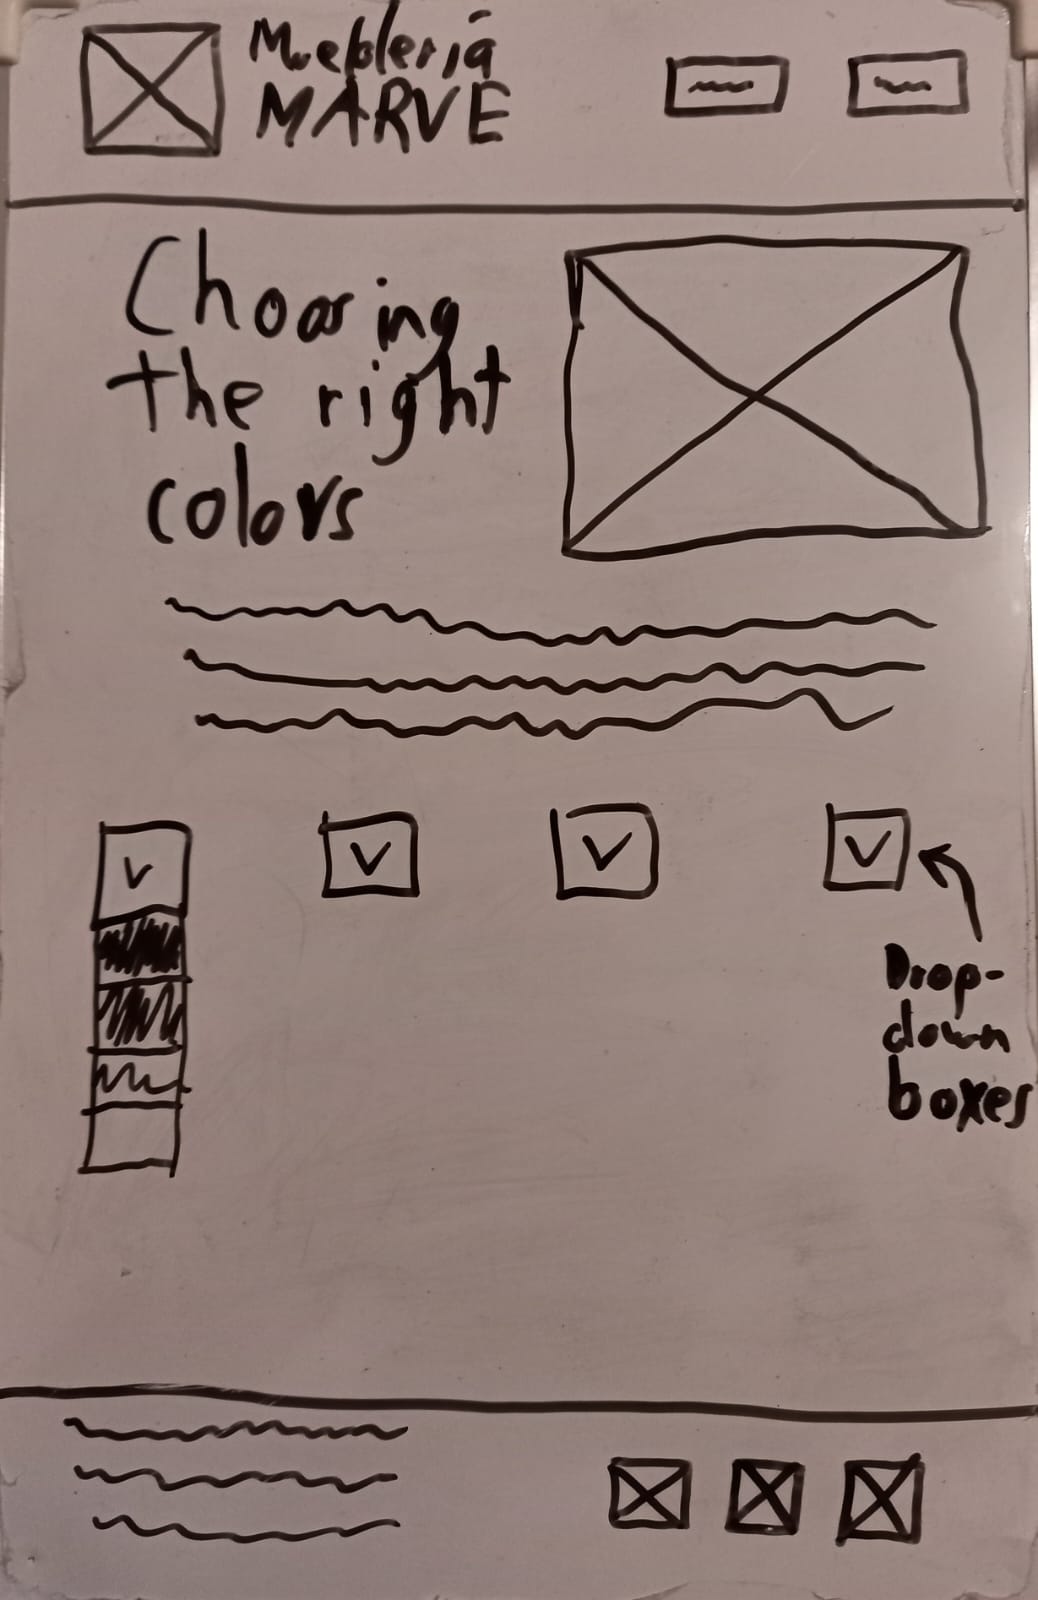 Mueblería
MARVE
Choosing
the right
colors
Drop-
down
boxes